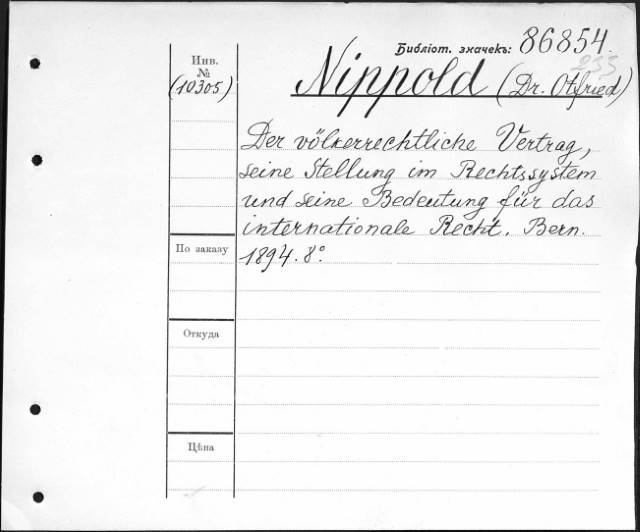 Библіот. значекъ: 86854.
233
Инв.
№
(10305)
Nippold (Dr. Otfried)
Der völkerrechtliche Vertrag,
seine Stellung im Rechtssystem
und seine Bedeutung für das
internationale Recht. Bern.
1894. 8°.
По заказу
Откуда
Цѣна